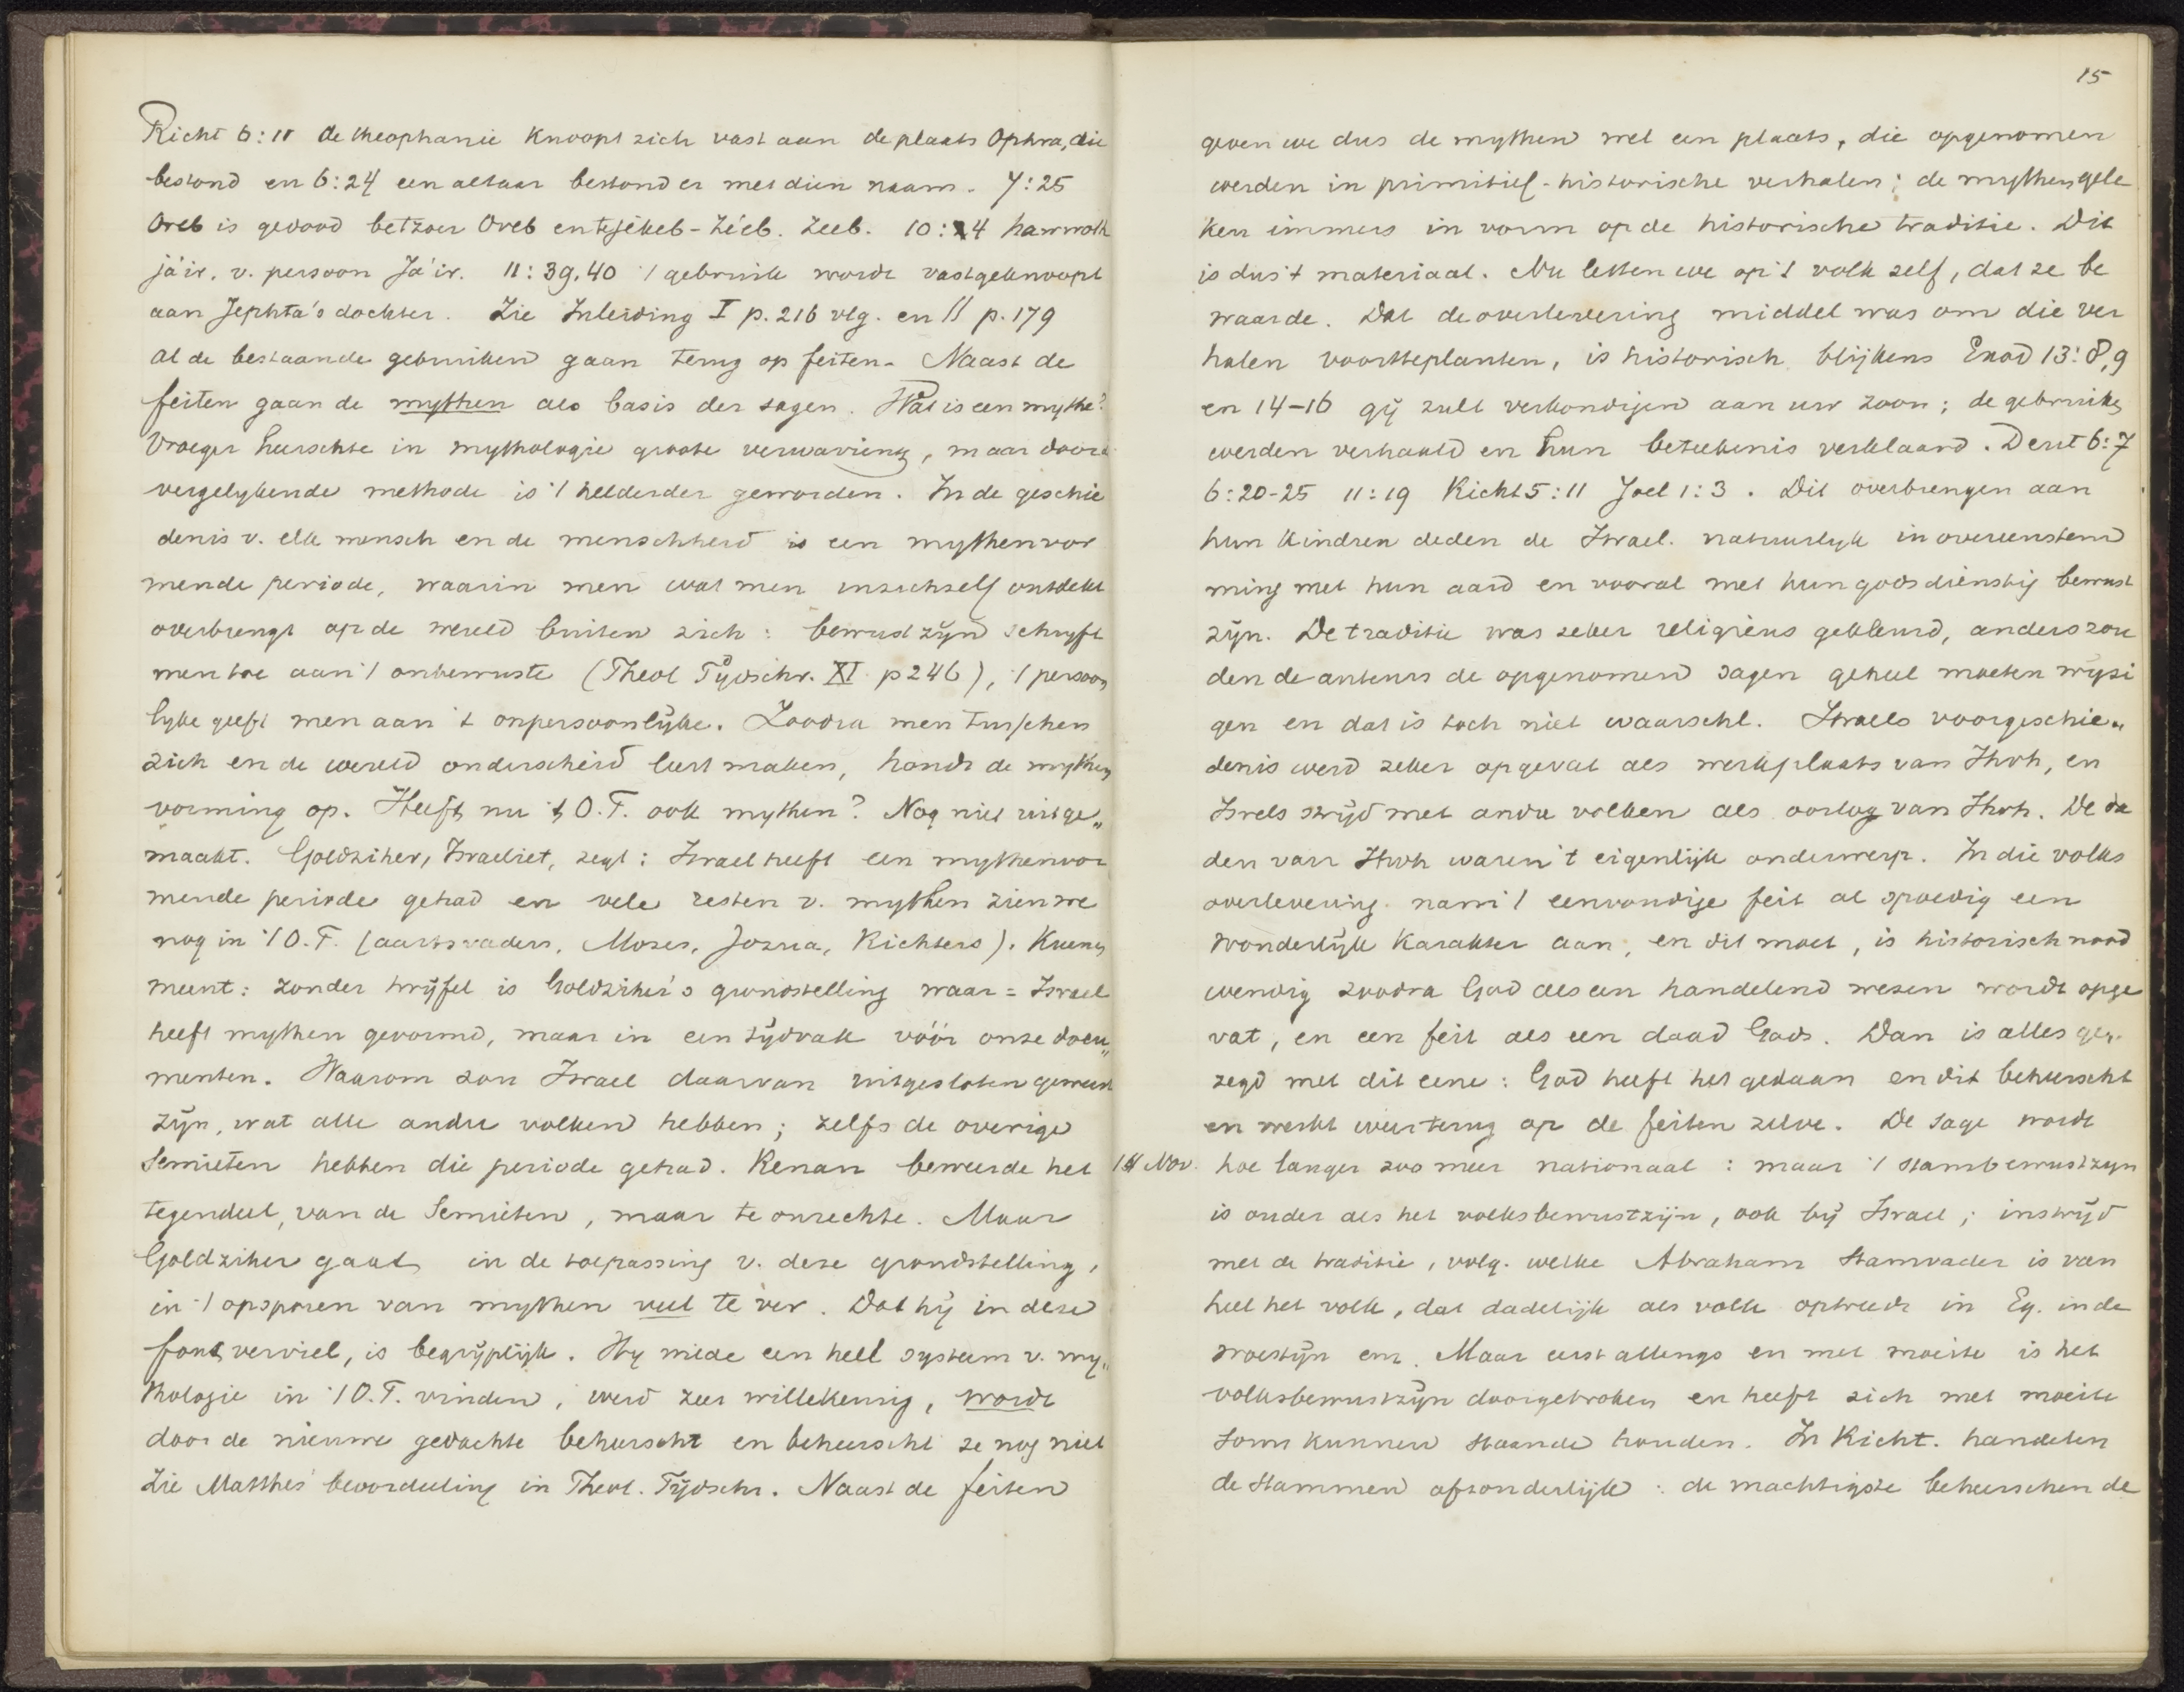 Richt 6:11 de theophanie knoopt zich vast aan de plaats Ophra, die
bestond en 6:24 een altaar bestond er met dien naam. 7:25
Oreb is gedood betzoer Oreb en tejékeb-Zéëb. Zeeb. 10:4 hawwoth
já'ir. v. persoon Ja'ir. 11:39,40 't gebruik wordt vastgeknoopt
aan Jephta's dochter. Zie Inleiding I p. 216 vlg. en II p. 179
al de bestaande gebruiken gaan terug op feiten. Naast de
feiten gaan de mythen als basis der sagen. Wat is een mythe?
Vroeger heerschte in mythologie groote verwarring, maar door d
vergelykende methode is 't helderder geworden. In de geschie
denis v. elk mensch en de menschheid is een mythenvor
mende periode, waarin men wat men in zichzelf ontdekt
overbrengt op de wereld buiten zich: bewustzijn schryft
men toe aan 't onbewuste (Theol Tijdschr. XI p 246), 't persoon
lyke geeft men aan 't onpersoonlijke. Zoodra men tusschen
zich en de wereld onderscheid leert maken, houdt de mythen
vorming op. Heeft nu 't O.T. ook mythen? Nog niet uitge„
maakt. Goldziher, Israeliet, zegt: Israel heeft een mythenvor
mende periode gehad en vele resten v. mythen zien we
nog in 't O.T. (aartsvaders, Mozes, Jozua, Richters). Kuenen
meent: zonder twijfel is Goldziher's grondstelling waar = Israel
heeft mythen gevormd, maar in een tijdvak vóór onze docu„
menten. Waarom zou Israel daarvan uitgesloten geweest
zijn, wat alle andre volken hebben; zelfs de overige
Semieten hebben die periode gehad. Renan beweerde het
tegendeel, van de Semieten, maar te onrechte. Maar
Goldziher gaat in de toepassing v. deze grondstelling,
in 't opsporen van mythen veel te ver. Dat hij in deze
fout verviel, is begrijplijk. Hy wilde een heel systeem v. my„
thologie in 't O.T. vinden, werd zeer willekeurig, wordt
door de nieuwe gedachte beheerscht en beheerscht ze nog niet
Zie Matthes' beoordeeling in Theol. Tijdschr. Naast de feiten
15
geven we dus de mythen wel een plaats, die opgenomen
werden in primitief-historische verhalen; de mythen gele
ken immers in vorm op de historische traditie. Dit
is dus 't materiaal. Nu letten we op 't volk zelf, dat ze be
waarde. Dat de overlevering middel was om die ver
halen voortteplanten, is historisch blijkens Exod 13:8,9
en 14-16 gij zult verkondigen aan uw zoon; de gebruiken
werden verhaald en hun beteekenis verklaard. Deut 6:7
6:20-25 11:19 Richt 5:11 Joel 1:3. Dit overbrengen aan
hun kindren deden de Israel. natuurlyk in overeenstem
ming met hun aard en vooral met hun godsdienstig bewust
zijn. De traditie was zeker religieus gekleurd, anders zou
den de auteurs de opgenomen sagen geheel moeten wijzi
gen en dat is toch niet waarschl. Israels voorgeschie„
denis werd zeker opgevat als werkplaats van Jhvh, en
Isrels strijd met andre volken als oorlog van Jhvh. De da
den van Jhvh waren 't eigenlijk onderwerp. In die volks
overlevering nam 't eenvoudige feit al spoedig een
wonderlijk karakter aan, en dit moet, is historisch nood
wendig zoodra God als een handelend wezen wordt opge
vat, en een feit als een daad Gods. Dan is alles ge„
zegd met dit eene: God heeft het gedaan en dit beheerscht
en werkt weer terug op de feiten zelve. De sage wordt
14 Nov. hoe langer zoo meer nationaal: maar 't stambewustzyn
is ouder als het volksbewustzijn, ook bij Israel; in strijd
met de traditie, volg. welke Abraham stamvader is van
heel het volk, dat dadelijk als volk optreedt in Eg. in de
woestijn enz. Maar eerst allengs en met moeite is het
volksbewustzijn doorgebroken en heeft zich met moeite
soms kunnen staande houden. In Richt. handelen
de stammen afzonderlijk: de machtigste beheerschen de